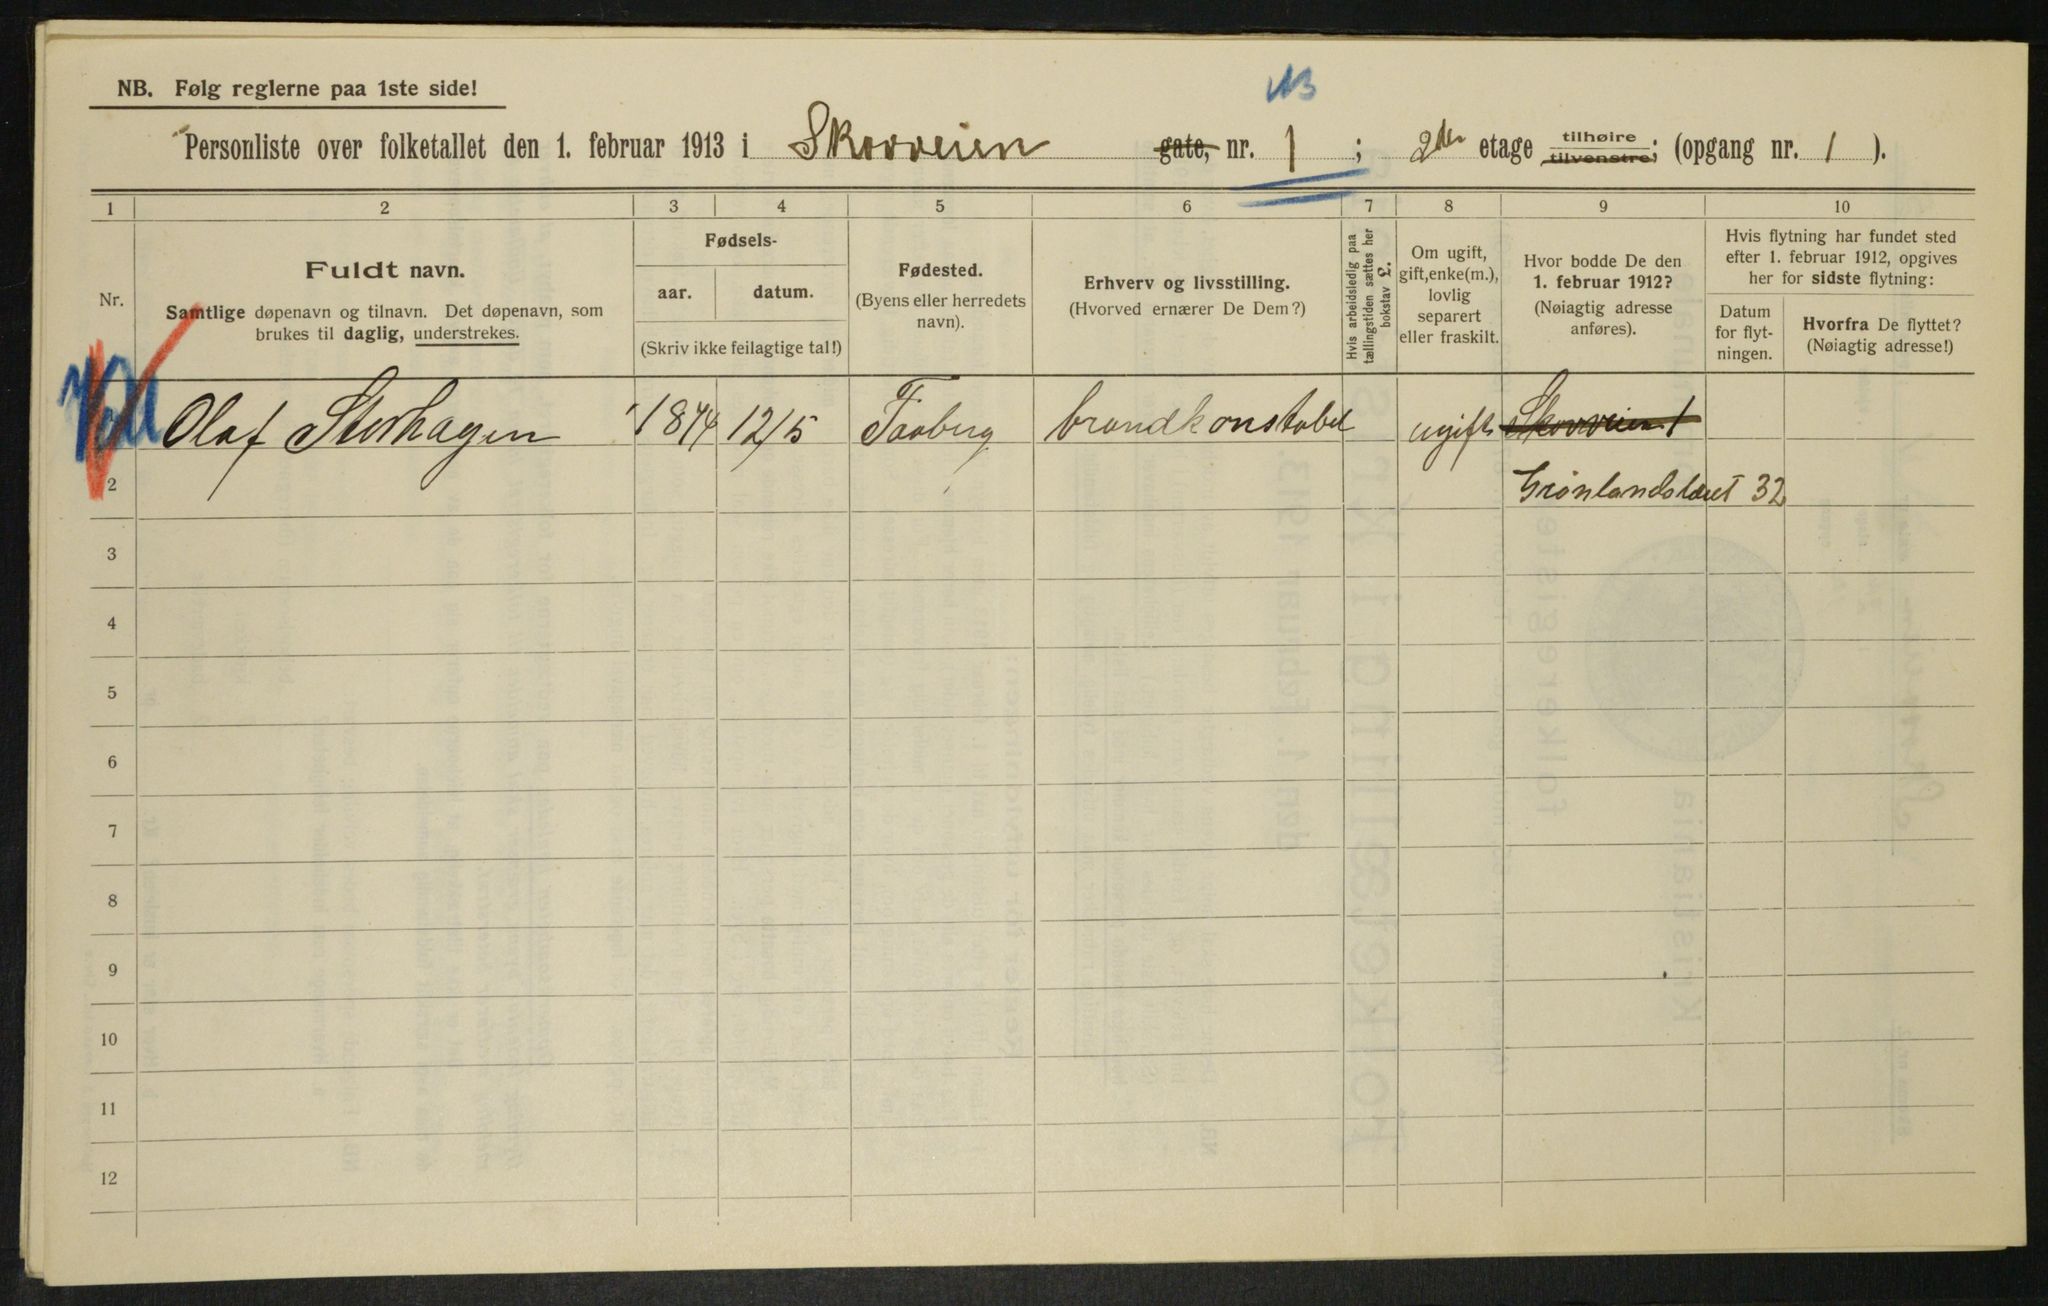 NB. Følg reglerne paa 1ste side!
NB
Personliste over folketallet den 1. februar 1913 i Skovveien gate, nr. 1 ; 2den etage tilhøire tilvenstre; (opgang nr. 1 ).
1 2 3 4 5 6 7 8 9 10
Nr.
Fuldt navn.
Samtlige døpenavn og tilnavn. Det døpenavn, som
brukes til daglig, understrekes.
Fødsels-
aar. datum.
(Skriv ikke feilagtige tal!)
Fødested.
(Byens eller herredets
navn).
Erhverv og livsstilling.
(Hvorved ernærer De Dem?)
Hvis arbeidsledig paa
tællingstiden sættes her
bokstav L.
Om ugift,
gift, enke(m.),
lovlig
separert
eller fraskilt.
Hvor bodde De den
1. februar 1912?
(Nøiagtig adresse
anføres).
Hvis flytning har fundet sted
efter 1. februar 1912, opgives
her for sidste flytning:
Datum
for flyt-
ningen.
Hvorfra De flyttet?
(Nøiagtig adresse!)
Olaf Storhagen 1874 12/5 Faaberg brandkonstabel ugift Skovveien 1
2 Grønlandsleret 32
3
4
5
6
7
8
9
10
11
12